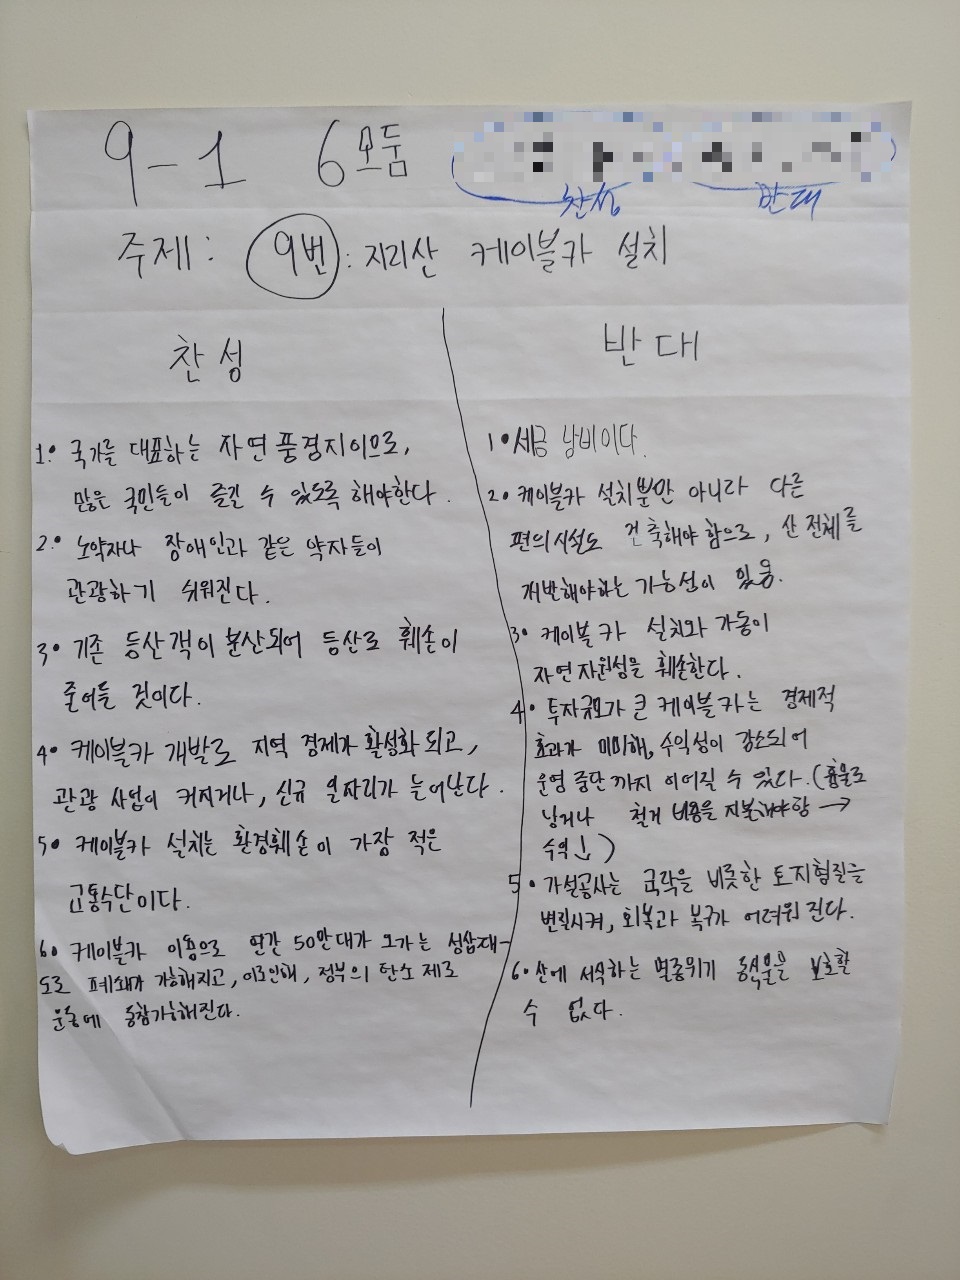 9-1 6모둠
찬성 반대
주제: 9번: 지리산 케이블카 설치
찬성
1. 국가를 대표하는 자연 풍경지이므로,
많은 국민들이 즐길 수 있도록 해야한다.
2. 노약자나 장애인과 같은 약자들이
관광하기 쉬워진다.
3. 기존 등산객이 분산되어 등산로 훼손이
줄어들 것이다.
4. 케이블카 개발로 지역 경제가 활성화 되고,
관광 사업이 커지거나, 신규 일자리가 늘어난다.
5. 케이블카 설치는 환경훼손이 가장 적은
교통수단이다.
6. 케이블카 이용으로 연간 50만대가 오가는 성삼재-
도로 폐쇄가 가능해지고, 이로인해, 정부의 탄소 제로
운동에 동참가능해진다.
반대
1. 세금 낭비이다.
2. 케이블카 설치뿐만 아니라 다른
편의시설도 건축해야 함으로, 산 전체를
개발해야하는 가능성이 있음.
3. 케이블카 설치와 가동이
자연자원성을 훼손한다.
4. 투자규모가 큰 케이블카는 경제적
효과가 미미해, 수익성이 감소되어
운영 중단까지 이어질 수 있다. (흉물로
남거나 철거 비용을 지불해야함 →
수익↓)
5. 가설공사는 굴착을 비롯한 토지형질을
변질시켜, 회복과 복구가 어려워진다.
6. 산에 서식하는 멸종위기 동식물을 보호할
수 없다.